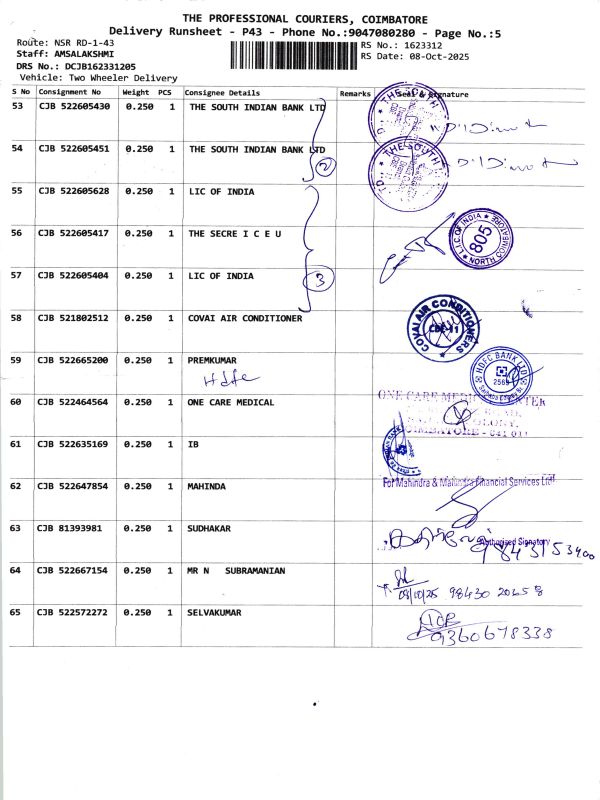 THE PROFESSIONAL COURIERS, COIMBATORE
Delivery Runsheet - P43 - Phone No.:9047080280 - Page No.:5
Route: NSR RD-1-43
RS No.: 1623312
Staff: AMSALAKSHMI
RS Date: 08-Oct-2025
DRS No.: DCJB162331205
Vehicle: Two Wheeler Delivery
S No Consignment No Weight PCS Consignee Details Remarks Seal & Signature
53 CJB 522605430 0.250 1 THE SOUTH INDIAN BANK LTD
THE SOUTH
54 CJB 522605451 0.250 1 THE SOUTH INDIAN BANK LTD
2
THE SOUTH
55 CJB 522605628 0.250 1 LIC OF INDIA
56 CJB 522605417 0.250 1 THE SECRE I C E U
L.I.C. OF INDIA
805
NORTH COIMBATORE
57 CJB 522605404 0.250 1 LIC OF INDIA
3
58 CJB 521802512 0.250 1 COVAI AIR CONDITIONER
COVAI AIR CONDITIONERS
CBE-11
59 CJB 522665200 0.250 1 PREMKUMAR
Hdfc
HDFC BANK LTD
60 CJB 522464564 0.250 1 ONE CARE MEDICAL
ONE CARE
COIMBATORE - 641 011
61 CJB 522635169 0.250 1 IB
62 CJB 522647854 0.250 1 MAHINDA
For Mahindra & Mahindra Financial Services Ltd.
63 CJB 81393981 0.250 1 SUDHAKAR
Authorised Signatory
64 CJB 522667154 0.250 1 MR N SUBRAMANIAN
08/10/25 98430 20658
65 CJB 522572272 0.250 1 SELVAKUMAR
9360678338